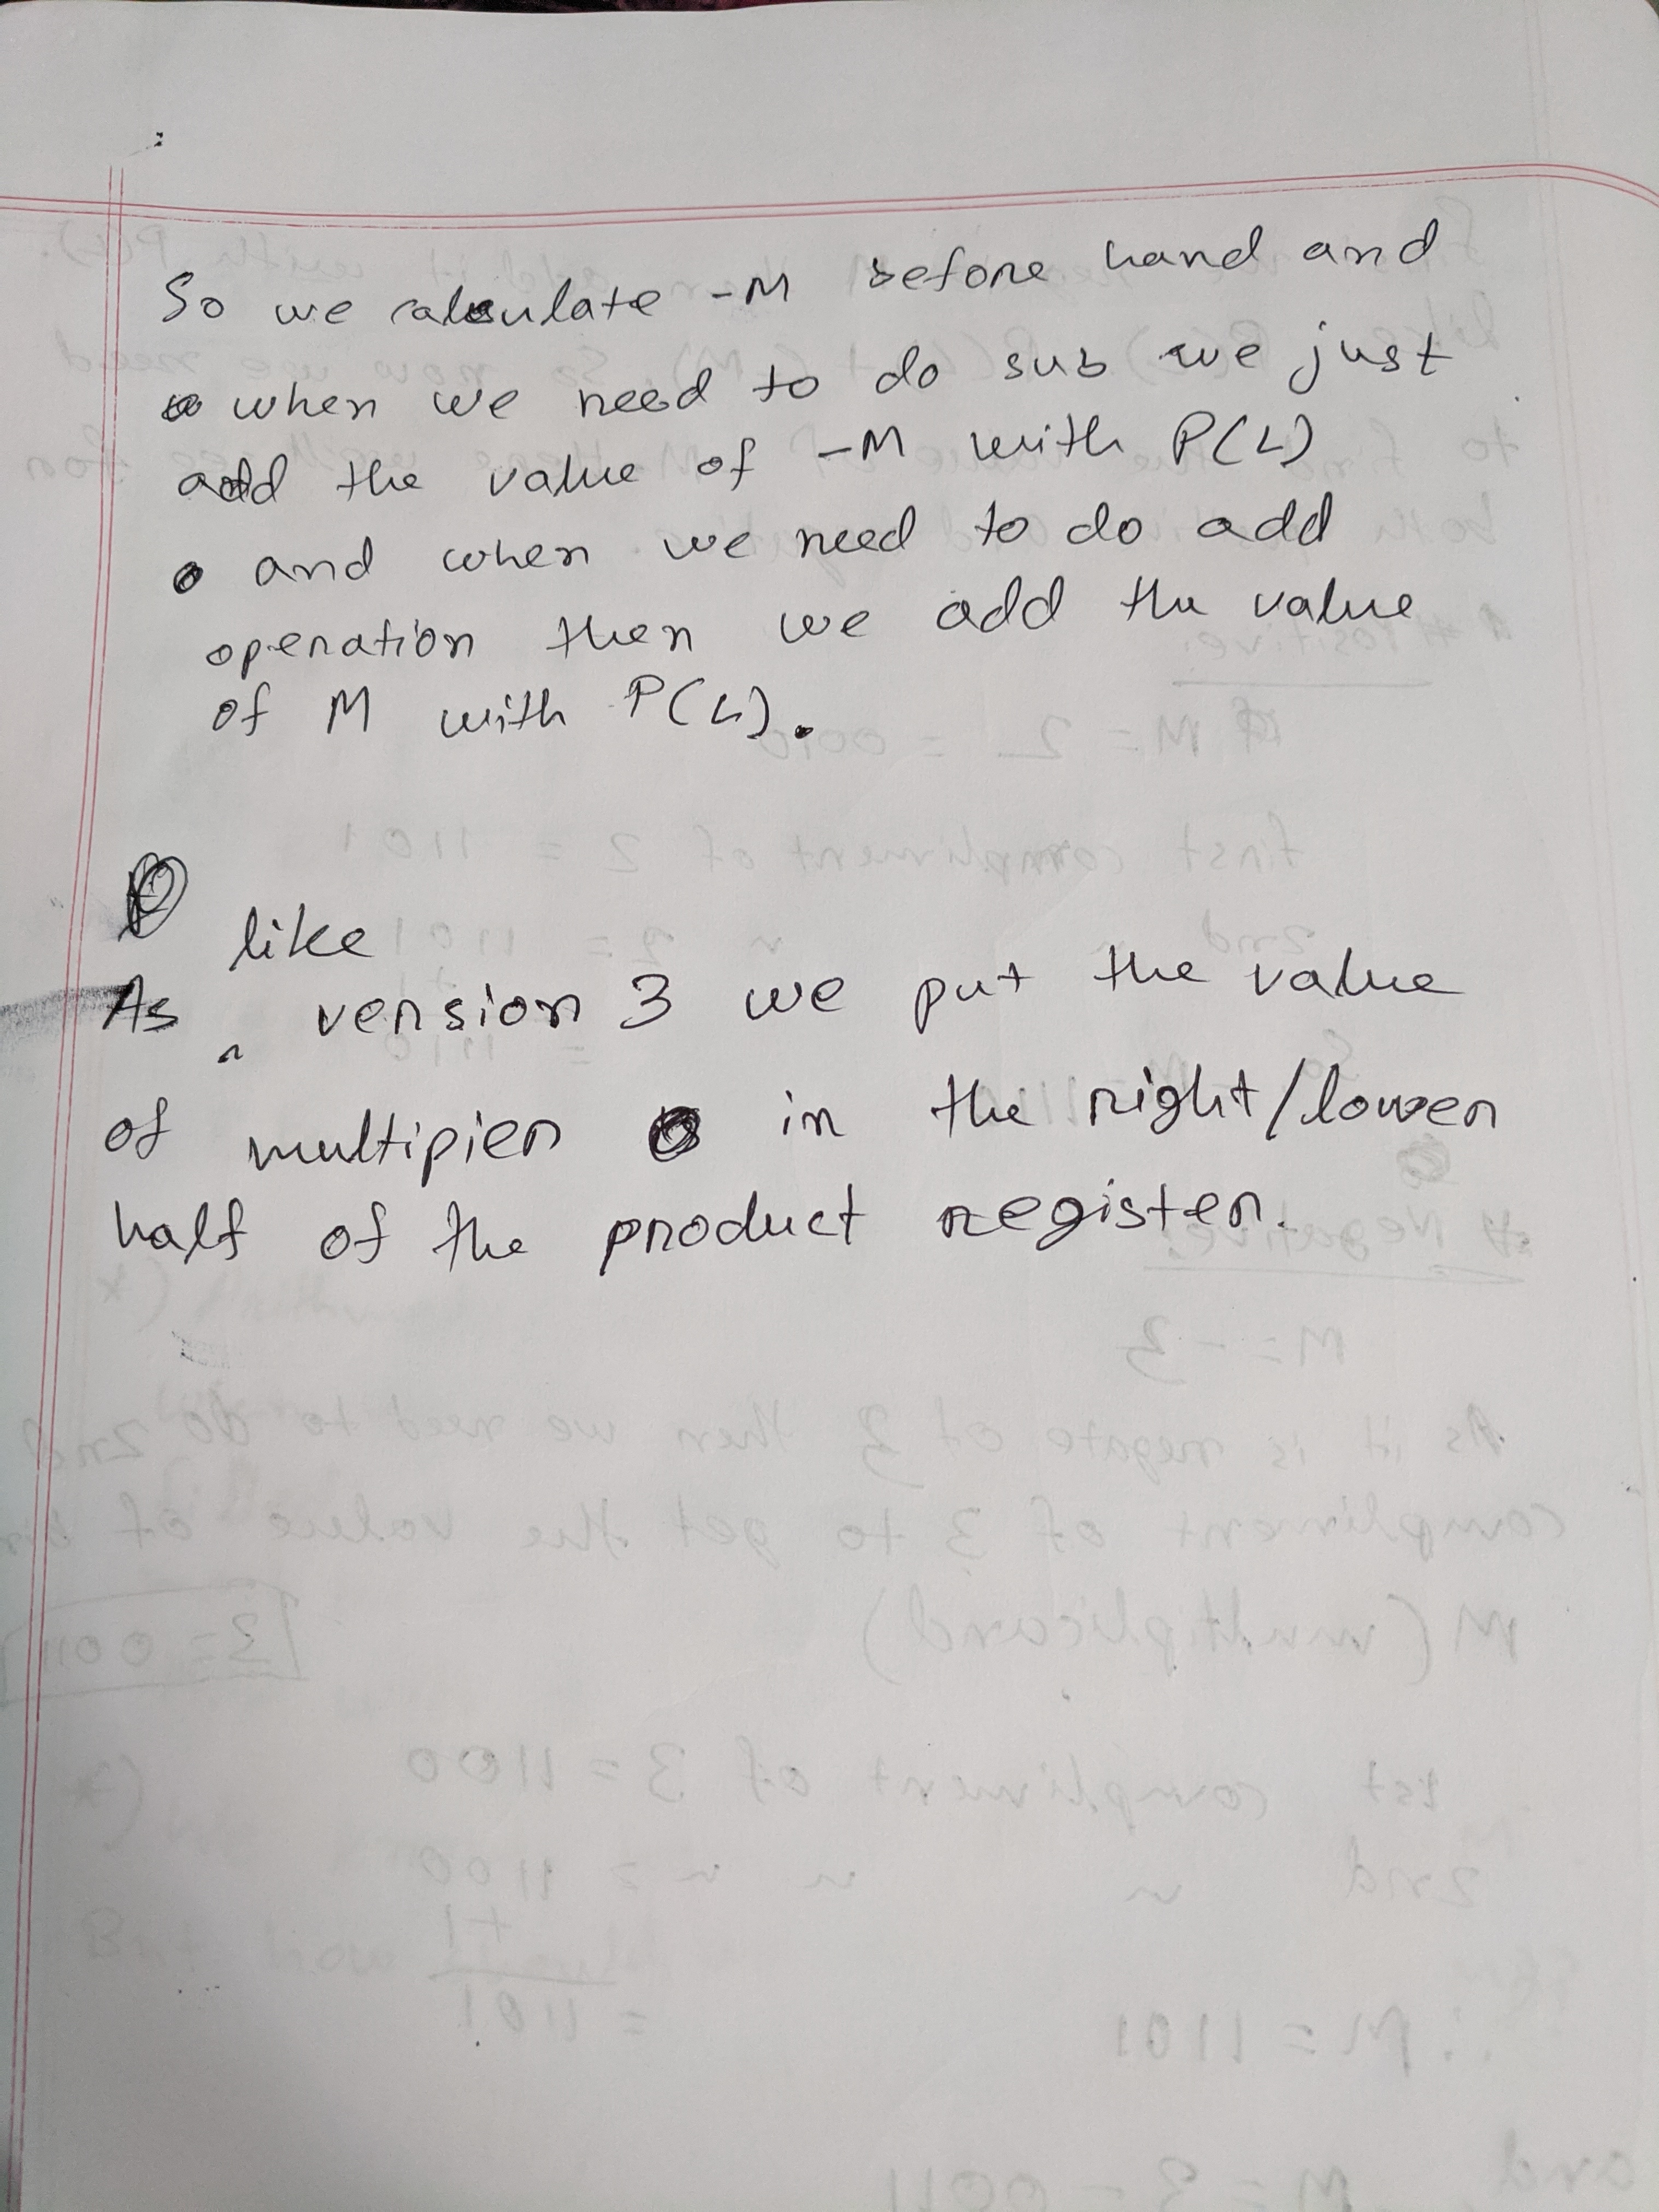 So we calculate -M before hand and
when we need to do sub we just
add the value of -M with P(L)
and when we need to do add
operation then we add the value
of M with P(L).
like
As ^ version 3 we put the value
of multipier in the right/lower
half of the product register.